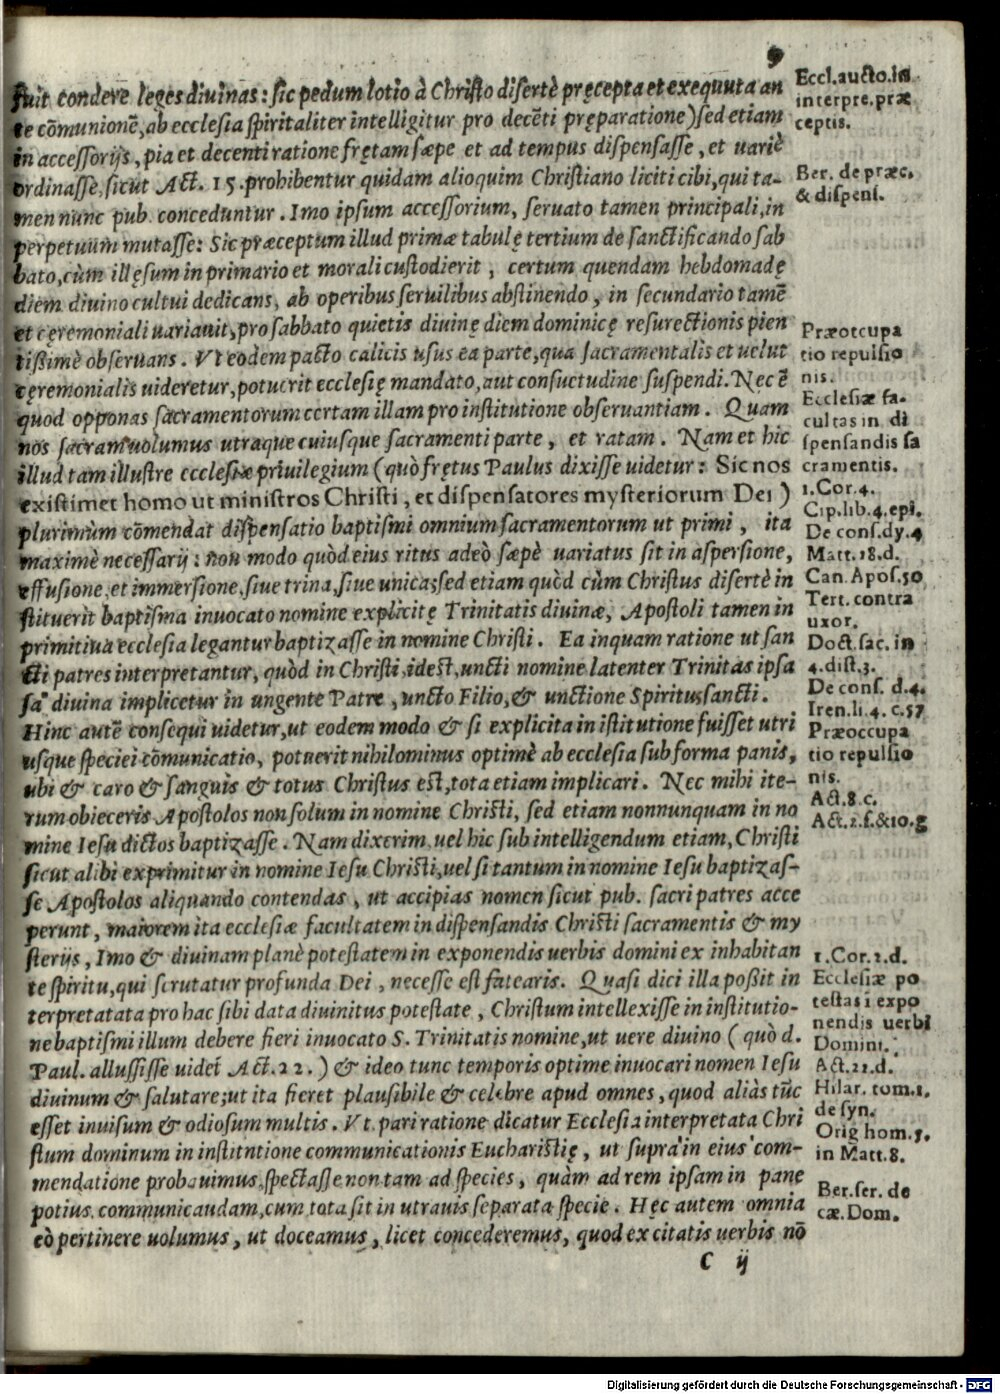 9
fuit condere leges diuinas: sic pedum lotio à Christo disertè pręcepta et exequuta an
te cõmunionẽ, ab ecclesia spiritaliter intelligitur pro decẽti pręparatione) sed etiam
in accessorijs, pia et decenti ratione frętam sæpe et ad tempus dispensasse, et uariè
ordinasse, sicut Act. 15. prohibentur quidam alioquim Christiano liciti cibi, qui ta-
men nunc pub. conceduntur. Imo ipsum accessorium, seruato tamen principali, in
perpetuum mutasse: Sic præceptum illud primæ tabulę tertium de sanctificando sab
bato, cùm illęsum in primario et morali custodierit, certum quendam hebdomadę
diem diuino cultui dedicans, ab operibus seruilibus abstinendo, in secundario tamẽ
et cęremoniali uariauit, pro sabbato quietis diuinę diem dominicę resurectionis pien
tissimè obseruans. Vt eodem pacto calicis usus ea parte, qua sacramentalis et uelut
cęremonialis uideretur, potuerit ecclesię mandato, aut consuetudine suspendi. Nec ẽ
quod opponas sacramentorum certam illam pro institutione obseruantiam. Quam
nos sacram uolumus utraque cuiusque sacramenti parte, et ratam. Nam et hic
illud tam illustre ecclesiæ priuilegium (quò frętus Paulus dixisse uidetur: Sic nos
existimet homo ut ministros Christi, et dispensatores mysteriorum Dei)
plurimùm cõmendat dispensatio baptismi omnium sacramentorum ut primi, ita
maximè necessarij: non modo quòd eius ritus adeò sæpè uariatus sit in aspersione,
effusione, et immersione, siue trina, siue unica; sed etiam quòd cùm Christus disertè in
stituerit baptisma inuocato nomine explicitę Trinitatis diuinæ, Apostoli tamen in
primitiua ecclesia legantur baptizasse in nomine Christi. Ea inquam ratione ut san
cti patres interpretantur, quòd in Christi, idest, uncti nomine latenter Trinitas ipsa
sa diuina implicetur in ungente Patre, uncto Filio, & unctione Spiritus sancti.
Hinc autẽ consequi uidetur, ut eodem modo & si explicita in istitutione fuisset utri
usque speciei cõmunicatio, potuerit nihilominus optimè ab ecclesia sub forma panis,
ubi & caro & sanguis & totus Christus est, tota etiam implicari. Nec mihi ite-
rum obieceris Apostolos non solum in nomine Christi, sed etiam nonnunquam in no
mine Iesu dictos baptizasse. Nam dixerim, uel hic sub intelligendum etiam, Christi
sicut alibi exprimitur in nomine Iesu Christi, uel si tantum in nomine Iesu baptizas-
se Apostolos aliquando contendas, ut accipias nomen sicut pub. sacri patres acce
perunt, maiorem ita ecclesiæ facultatem in dispensandis Christi sacramentis & my
sterijs, Imo & diuinam planè potestatem in exponendis uerbis domini ex inhabitan
te spiritu, qui scrutatur profunda Dei, necesse est fatearis. Quasi dici illa poßit in
terpretatata pro hac sibi data diuinitus potestate, Christum intellexisse in institutio-
ne baptismi illum debere fieri inuocato S. Trinitatis nomine, ut uere diuino (quò d.
Paul. allussisse uidet Act. 22.) & ideo tunc temporis optime inuocari nomen Iesu
diuinum & salutare; ut ita fieret plausibile & celebre apud omnes, quod aliàs tũc
esset inuisum & odiosum multis. Vt pari ratione dicatur Ecclesia interpretata Chri
stum dominum in institntione communicationis Eucharistię, ut supra in eius com-
mendatione probauimus, spectasse non tam ad species, quàm ad rem ipsam in pane
potius communicaudam, cum tota sit in utrauis separata specie. Hęc autem omnia
eò pertinere uolumus, ut doceamus, licet concederemus, quod ex citatis uerbis nõ
C ij
Eccl. aucto. in
interpre. præ
ceptis.
Ber. de præc.
& dispens.
Præotcupa
tio repulsio
nis.
Ecclesiæ fa-
cultas in di
spensandis sa
cramentis.
1. Cor. 4.
Cip. lib. 4. epi.
De cons. dy. 4
Matt. 18. d.
Can. Apos. 50
Tert. contra
uxor.
Doct. sac. in
4. dist. 3.
De cons. d. 4.
Iren. li. 4. c. 57
Præoccupa
tio repulsio
nis.
Act. 8. c.
Act. 2. f. & 10. g
1. Cor. 2. d.
Ecclesiæ po
testas i expo
nendis uerbi
Domini.
Act. 22. d.
Hilar. tom. 1.
de syn.
Orig hom. 5.
in Matt. 8.
Ber. ser. de
cæ. Dom.
Digitalisierung gefördert durch die Deutsche Forschungsgemeinschaft - DFG